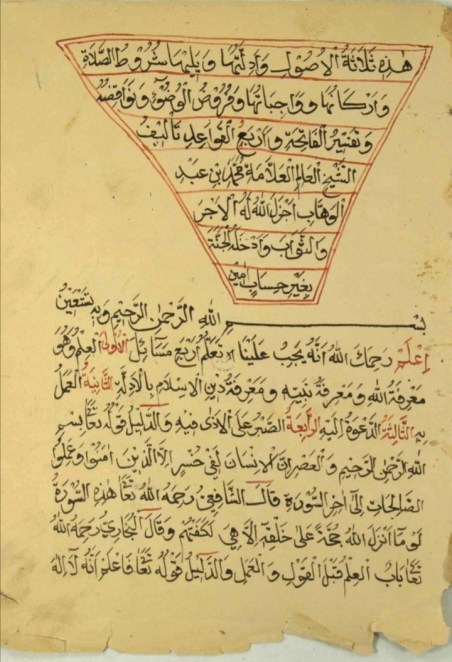 هٰذِهِ ثَلَاثَةُ الْاُصُوْلِ وَاَدِلَّتُهَا وَيَلِيْهَا شُرُوْطُ الصَّلَاةِ
وَاَرْكَانُهَا وَوَاجِبَاتُهَا وَفُرُوْضُ الْوُضُوْءِ وَنَوَاقِضُهُ
وَتَفْسِيْرُ الْفَاتِحَةِ وَاَرْبَعُ الْقَوَاعِدِ تَأْلِيْفُ
الشَّيْخِ الْعَالِمِ الْعَلَّامَةِ مُحَمَّدِ بْنِ عَبْدِ
الْوَهَّابِ اَجْزَلَ اللّٰهُ لَهُ الْاَجْرَ
وَالثَّوَابَ وَاَدْخَلَهُ الْجَنَّةَ
بِغَيْرِ حِسَابٍ اٰمِيْن
بِسْمِ اللّٰهِ الرَّحْمٰنِ الرَّحِيْمِ وَبِهِ نَسْتَعِيْنُ
اِعْلَمْ رَحِمَكَ اللّٰهُ اَنَّهُ يَجِبُ عَلَيْنَا تَعَلُّمُ اَرْبَعِ مَسَائِلَ الْاُوْلَى الْعِلْمُ وَهُوَ
مَعْرِفَةُ اللّٰهِ وَمَعْرِفَةُ نَبِيِّهِ وَمَعْرِفَةُ دِيْنِ الْاِسْلَامِ بِالْاَدِلَّةِ الثَّانِيَةُ الْعَمَلُ
بِهِ الثَّالِثَةُ الدَّعْوَةُ اِلَيْهِ الرَّابِعَةُ الصَّبْرُ عَلَى الْاَذٰى فِيْهِ وَالدَّلِيْلُ قَوْلُهُ تَعَا بِسْمِ
اللّٰهِ الرَّحْمٰنِ الرَّحِيْمِ وَالْعَصْرِ اِنَّ الْاِنْسَانَ لَفِيْ خُسْرٍ اِلَّا الَّذِيْنَ اٰمَنُوْا وَعَمِلُوا
الصَّالِحَاتِ اِلَى اٰخِرِ السُّوْرَةِ قَالَ الشَّافِعِيُّ رَحِمَهُ اللّٰهُ تَعَا هٰذِهِ السُّوْرَةُ
لَوْ مَا اَنْزَلَ اللّٰهُ حُجَّةً عَلَى خَلْقِهِ اِلَّا هِيَ لَكَفَتْهُمْ وَقَالَ الْبُخَارِيُّ رَحِمَهُ اللّٰهُ
تَعَا بَابُ الْعِلْمِ قَبْلَ الْقَوْلِ وَالْعَمَلِ وَالدَّلِيْلُ قَوْلُهُ تَعَا فَاعْلَمْ اَنَّهُ لَا اِلٰهَ